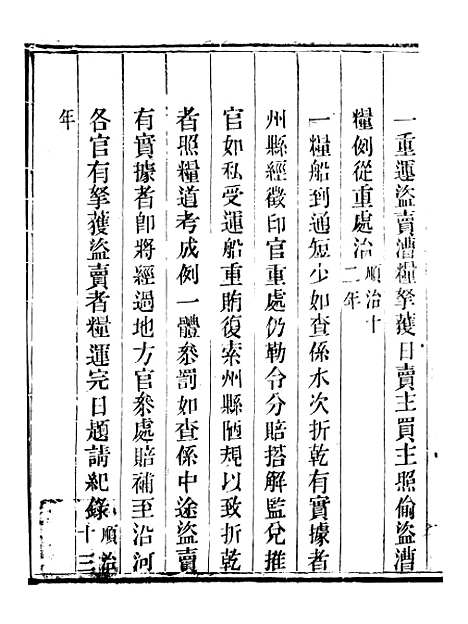 一重運盜賣漕糧拏獲日賣主買主照偷盜漕
糧例從重處治順治十二年
一糧船到通短少如查係水次折乾有實據者
州縣經徵印官重處仍勒令分賠搭解監兌推
官如私受運船重賄復索州縣陋規以致折乾
者照糧道考成例一體叅罰如查係中途盜賣
有實據者卽將經過地方官叅處賠補至沿河
各官有拏獲盜賣者糧運完日題請紀錄順治十三
年